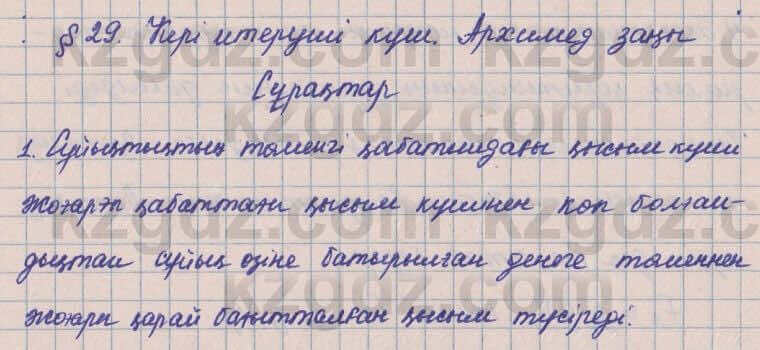 § 29. Кері итеруші күш. Архимед заңы
Сұрақтар
1. Сұйықтықтың төменгі қабатындағы қысым күші
жоғарғы қабаттағы қысым күшінен көп болған-
дықтан сұйық өзіне батырылған денеге төменнен
жоғары қарай бағытталған қысым түсіреді.
kzgdz.com